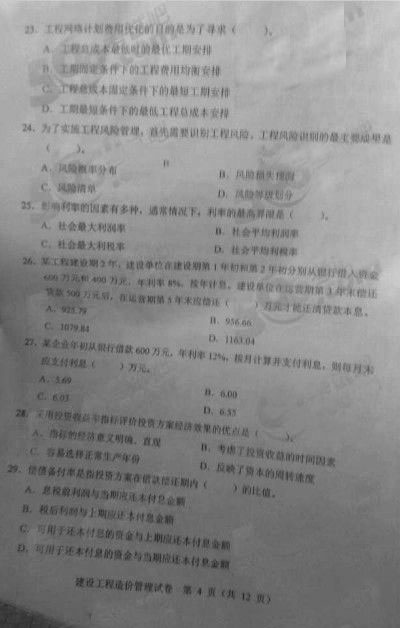 23、工程网络计划费用优化的目的是为了寻求（ ）。
A、工程总成本最低时的最优工期安排
B、工期固定条件下的工程费用均衡安排
C、工程总成本固定条件下的最短工期安排
D、工期最短条件下的最低工程总成本安排
24、为了实施工程风险管理，首先需要识别工程风险，工程风险识别的最主要成果是
（ ）。
A、风险概率分布 B、风险损失预测
C、风险清单 D、风险等级划分
25、影响利率的因素有多种，通常情况下，利率的最高界限是（ ）。
A、社会最大利润率 B、社会平均利润率
C、社会最大利税率 D、社会平均利税率
26、某工程建设期2年，建设单位在建设期第1年初和第2年初分别从银行借入资金
600万元和400万元，年利率8%，按年计息，建设单位在运营期第3年末偿还
贷款500万元后，在运营期第5年末应偿还（ ）万元才能还清贷款本息。
A、925.79 B、956.66
C、1079.84 D、1163.04
27、某企业年初从银行借款600万元，年利率12%，按月计算并支付利息，则每月末
应支付利息（ ）万元。
A、5.69 B、6.00
C、6.03 D、6.55
28、采用投资收益率指标评价投资方案经济效果的优点是（ ）。
A、指标的经济意义明确、直观 B、考虑了投资收益的时间因素
C、容易选择正常生产年份 D、反映了资本的周转速度
29、偿债备付率是指投资方案在借款偿还期内（ ）的比值。
A、息税前利润与当期应还本付息金额
B、税后利润与上期应还本付息金额
C、可用于还本付息的资金与上期应还本付息金额
D、可用于还本付息的资金与当期应还本付息金额
建设工程造价管理试卷 第 4 页（共 12 页）